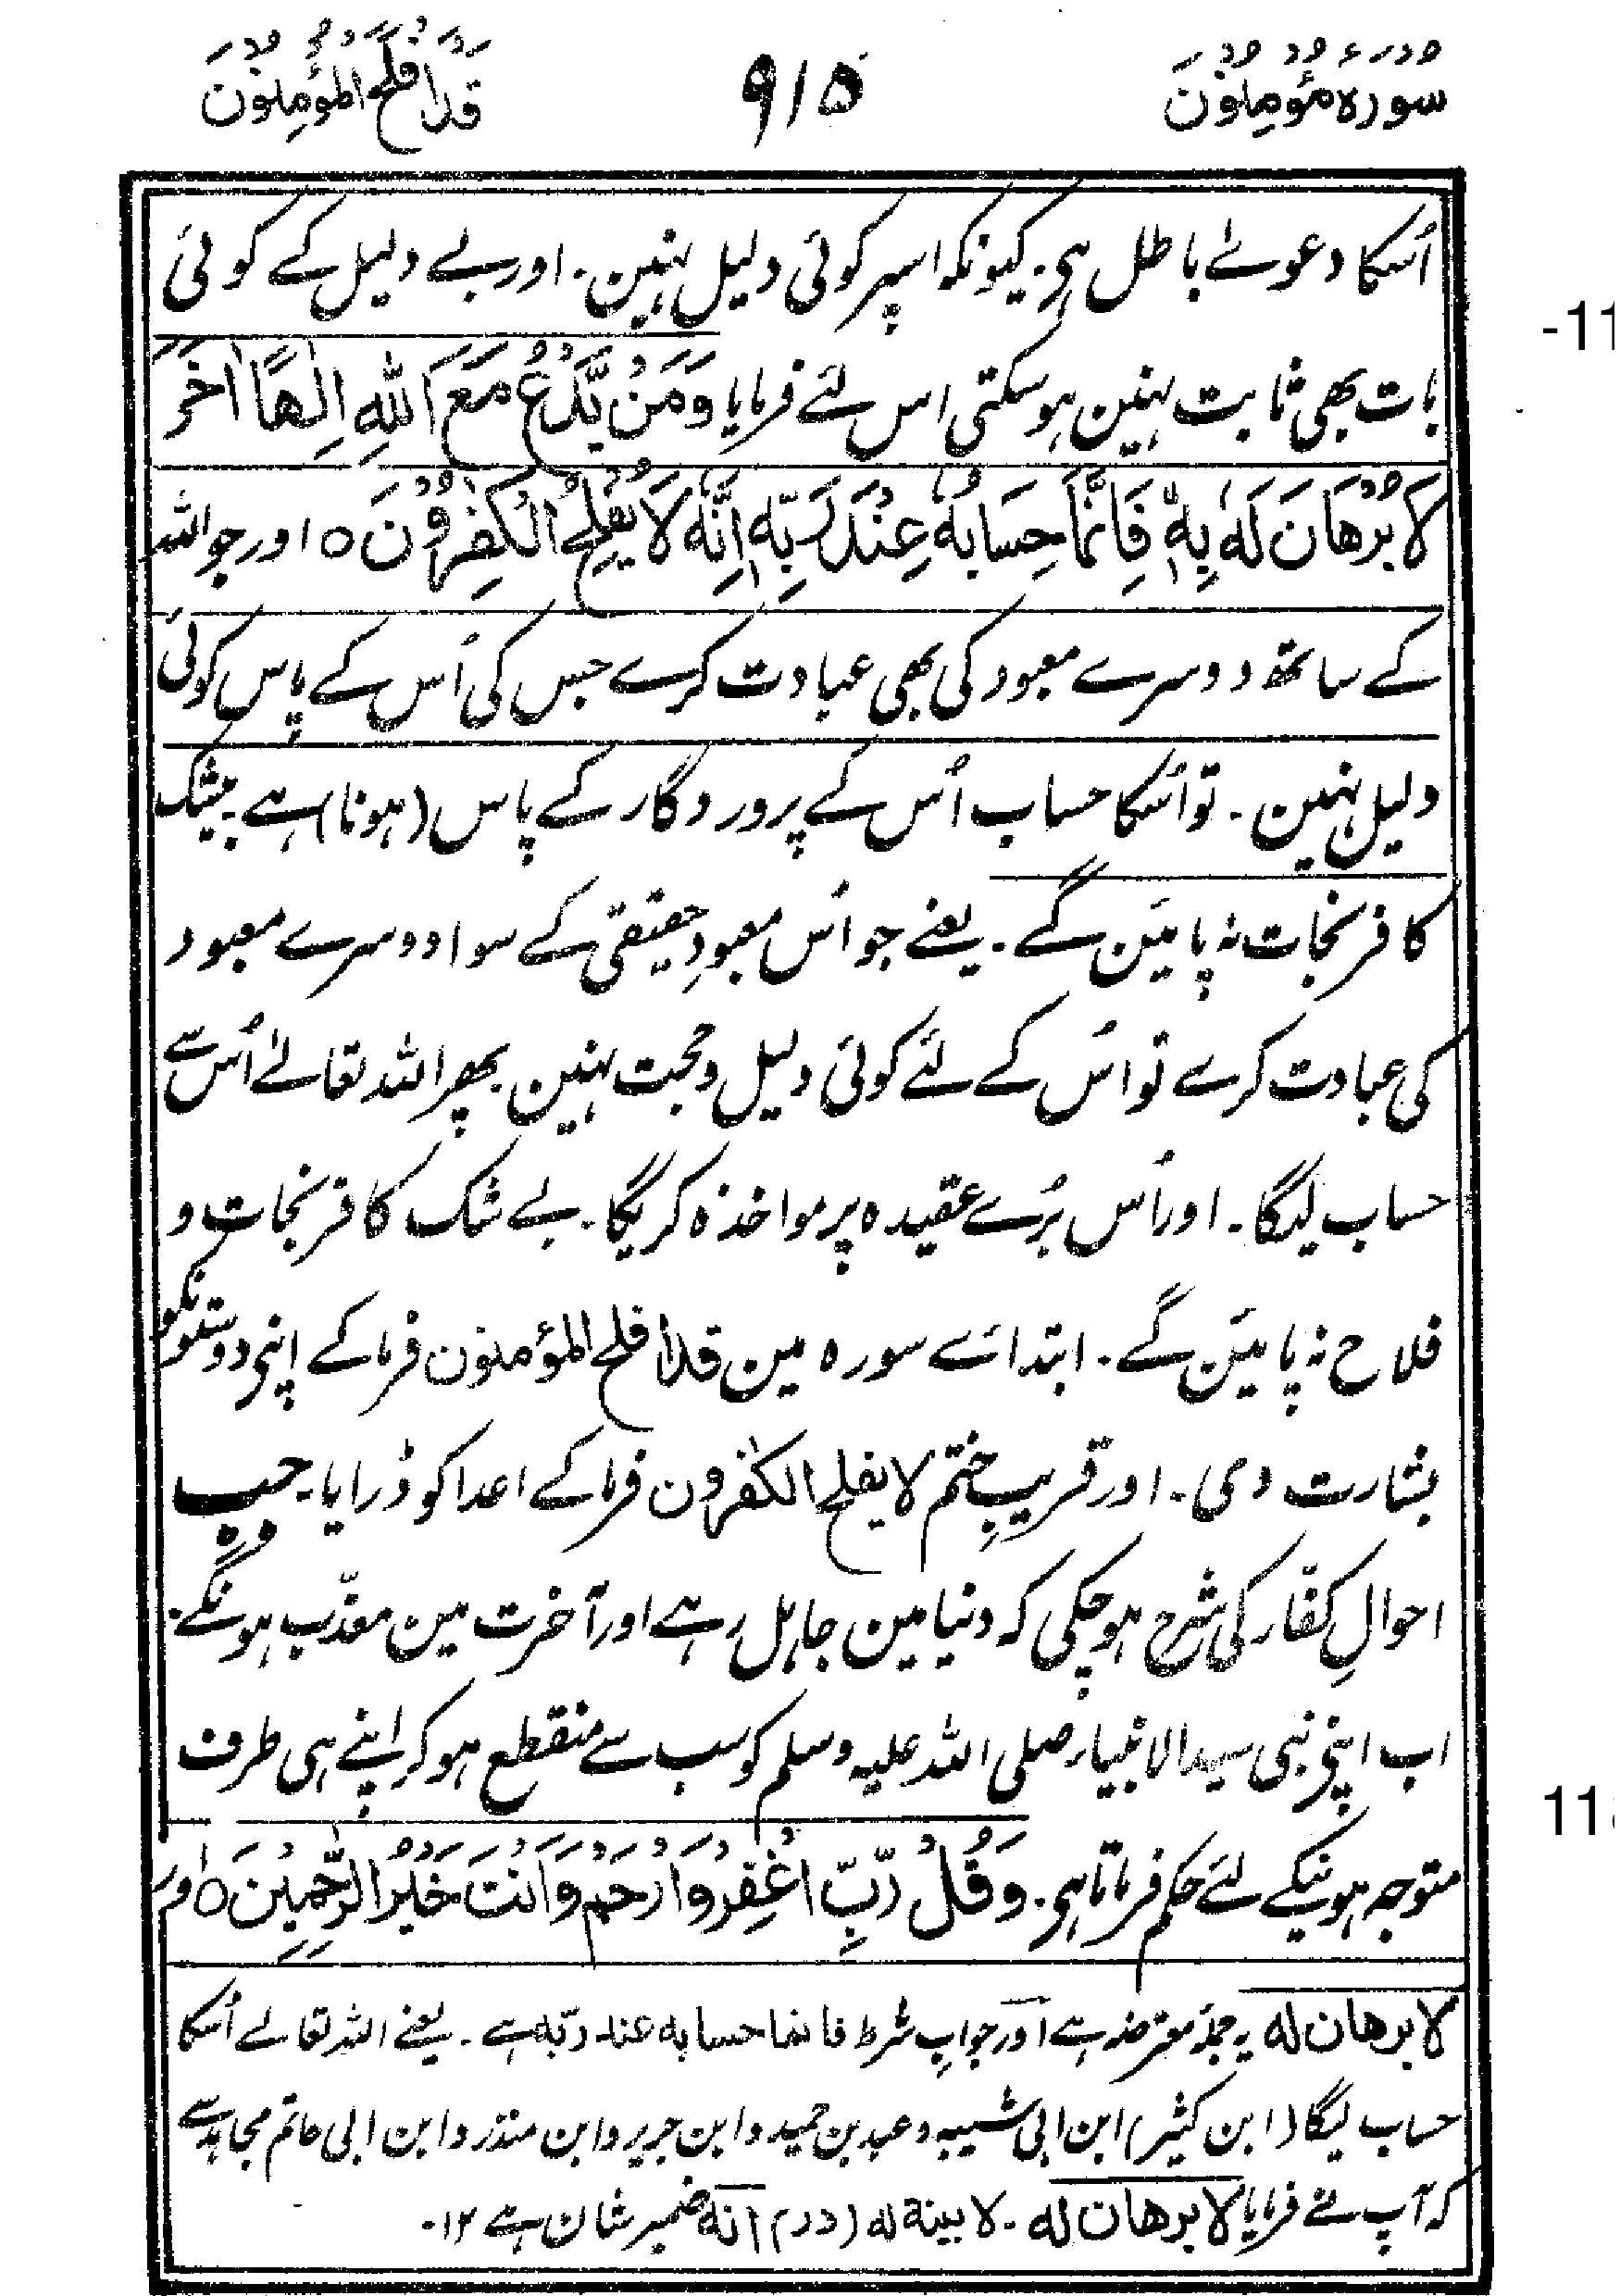 سُوْرَہ مُؤْمِنُوْنَ ۹۱۵ قَدْ اَفْلَحَ الْمُؤْمِنُوْنَ
اُسکا دعوےٰ باطل ہی۔ کیونکہ اسپر کوئی دلیل نہین۔ اور بے دلیل کے کوئی
-11
بات بھی ثابت نہین ہو سکتی اس لئے فرمایا وَمَنْ یَّدْعُ مَعَ اللّٰہِ اِلٰھًا اٰخَرَ
لَا بُرْھَانَ لَہٗ بِہٖ فَاِنَّمَا حِسَابُہٗ عِنْدَ رَبِّہٖ اِنَّہٗ لَا یُفْلِحُ الْکٰفِرُوْنَ ○ اور جو اللہ
کے ساتھ دوسرے معبود کی بھی عبادت کرے جس کی اُس کے پاس کوئی
دلیل نہین۔ تو اُسکا حساب اُس کے پروردگار کے پاس (ہونا) ہے۔ بیشک
کافر نجات نہ پائین گے۔ یعنے جو اُس معبودِ حقیقی کے سوا دوسرے معبود
کی عبادت کرے تو اُس کے لئے کوئی دلیل و حجت نہین۔ پھر اللہ تعالےٰ اُس سے
حساب لیگا۔ اور اُس بُرے عقیدہ پر مواخذہ کریگا۔ بے شک کافر نجات و
فلاح نہ پائین گے۔ ابتدائے سورہ مین قد افلح المؤمنون فرما کے اپنی دوستونکو
بشارت دی۔ اور قریبِ ختم لا یفلح الکٰفرون فرما کے اعدا کو ڈرایا۔ جب
احوالِ کفّار کی شرح ہو چکی کہ دنیا مین جاہل رہے اور آخرت مین معذّب ہونگے۔
اب اپنی نبی سید الانبیاء صلی اللہ علیہ وسلم کو سب سے منقطع ہو کر اپنے ہی طرف
118
متوجہ ہونیکے لئے حکم فرماتا ہی۔ وَقُلْ رَّبِّ اغْفِرْ وَارْحَمْ وَاَنْتَ خَیْرُ الرّٰحِمِیْنَ ○ اور
لا برھان لہ یہ جملہ معترضہ ہے اور جوابِ شرط فانما حسابہ عند ربّہ ہے۔ یعنے اللہ تعالےٰ اُسکا
حساب لیگا (ابن کثیر) ابن ابی شیبہ و عبد بن حمید و ابن جریر و ابن منذر و ابن ابی حاتم مجاہد سے
کہ آپ نے فرمایا لا برھان لہ۔ لا بینۃ لہ (درر) انہ ضمیر شان ہے ۱۲۔